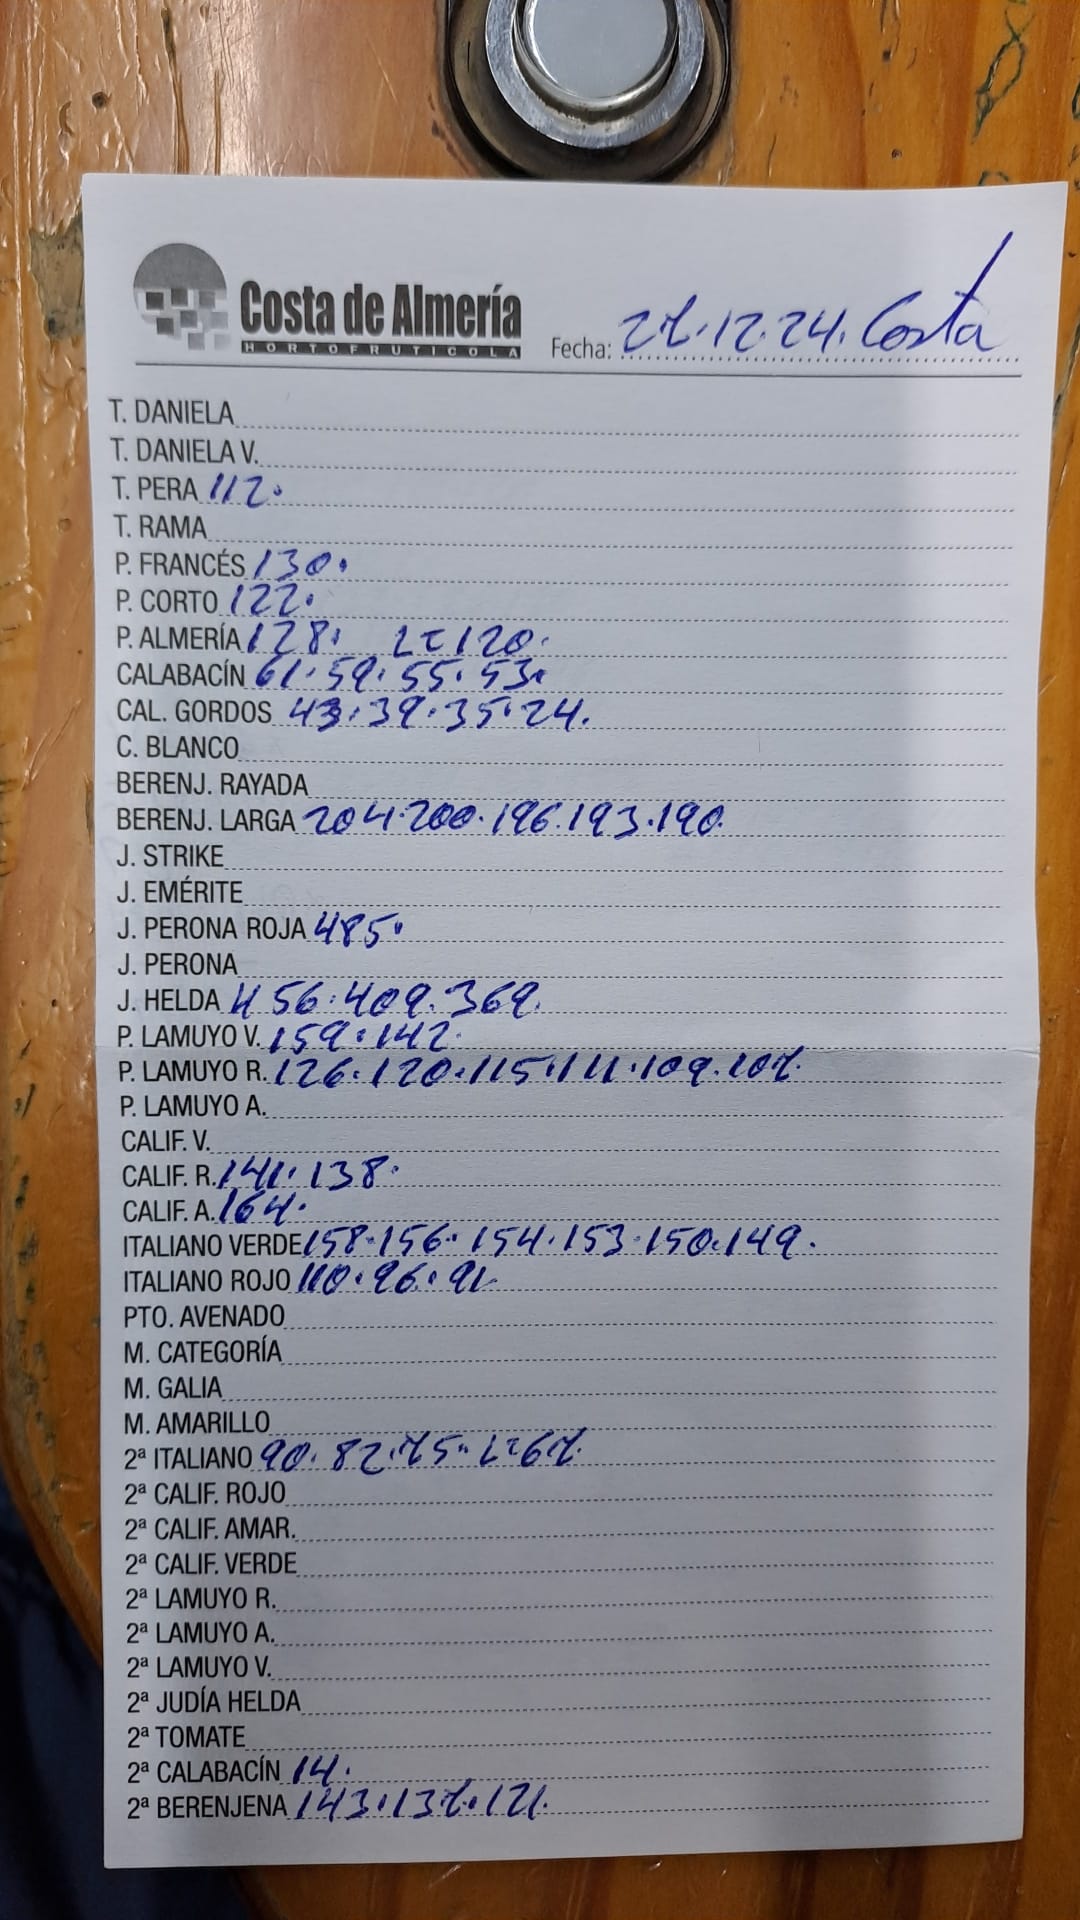 Costa de Almería
HORTOFRUTICOLA
Fecha: 27.12.24. Costa
T. DANIELA
T. DANIELA V.
T. PERA 112.
T. RAMA
P. FRANCÉS 130.
P. CORTO 122.
P. ALMERÍA 128. L=120.
CALABACÍN 61.59.55.53.
CAL. GORDOS 43.39.35.24.
C. BLANCO
BERENJ. RAYADA
BERENJ. LARGA 204.200.196.193.190.
J. STRIKE
J. EMÉRITE
J. PERONA ROJA 485.
J. PERONA
J. HELDA 456.409.369.
P. LAMUYO V. 159.142.
P. LAMUYO R. 126.120.115.111.109.107.
P. LAMUYO A.
CALIF. V.
CALIF. R. 141.138.
CALIF. A. 164.
ITALIANO VERDE 158.156.154.153.150.149.
ITALIANO ROJO 110.96.91.
PTO. AVENADO
M. CATEGORÍA
M. GALIA
M. AMARILLO
2ª ITALIANO 90.82.75. L=67.
2ª CALIF. ROJO
2ª CALIF. AMAR.
2ª CALIF. VERDE
2ª LAMUYO R.
2ª LAMUYO A.
2ª LAMUYO V.
2ª JUDÍA HELDA
2ª TOMATE
2ª CALABACÍN 14.
2ª BERENJENA 143.137.121.